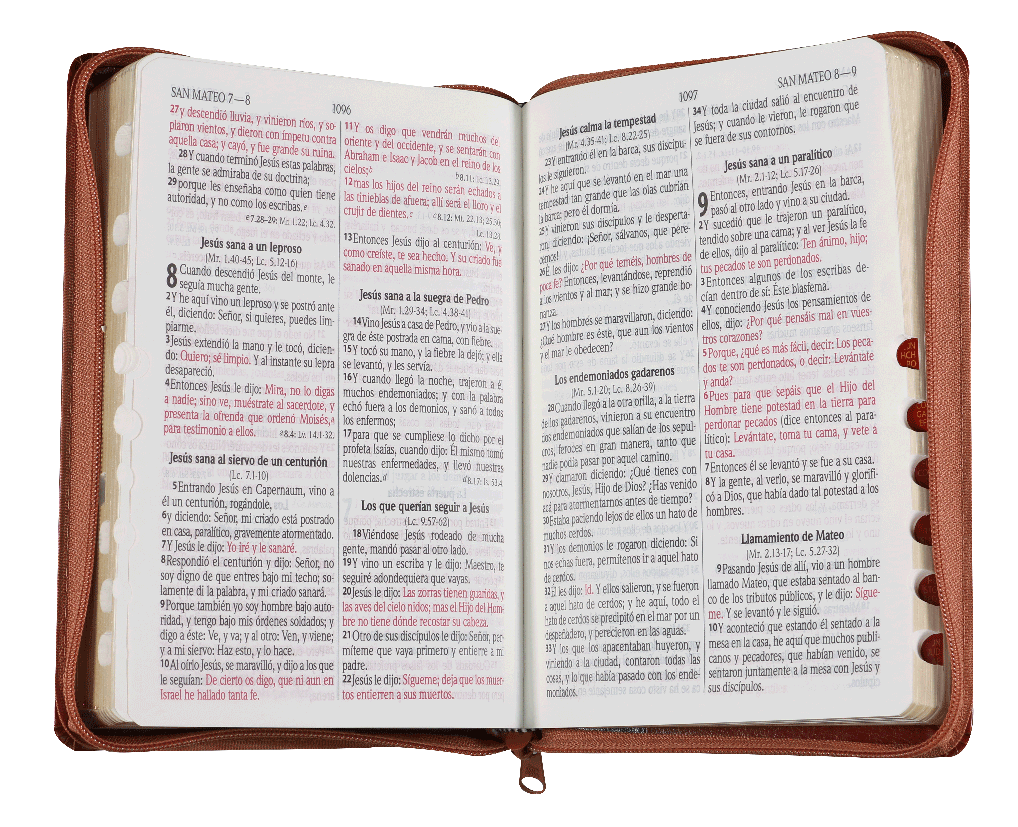 SAN MATEO 7—8
1096
27y descendió lluvia, y vinieron ríos, y so-
plaron vientos, y dieron con ímpetu contra
aquella casa; y cayó, y fue grande su ruina.
28Y cuando terminó Jesús estas palabras,
la gente se admiraba de su doctrina;
29porque les enseñaba como quien tiene
autoridad, y no como los escribas.
7.28-29: Mr. 1.22; Lc. 4.32.
Jesús sana a un leproso
(Mr. 1.40-45; Lc. 5.12-16)
8 Cuando descendió Jesús del monte, le
seguía mucha gente.
2Y he aquí vino un leproso y se postró ante
él, diciendo: Señor, si quieres, puedes lim-
piarme.
3Jesús extendió la mano y le tocó, dicien-
do: Quiero; sé limpio. Y al instante su lepra
desapareció.
4Entonces Jesús le dijo: Mira, no lo digas
a nadie; sino ve, muéstrate al sacerdote, y
presenta la ofrenda que ordenó Moisés,a
para testimonio a ellos. a8.4: Lv. 14.1-32.
Jesús sana al siervo de un centurión
(Lc. 7.1-10)
5Entrando Jesús en Capernaum, vino a
él un centurión, rogándole,
6y diciendo: Señor, mi criado está postrado
en casa, paralítico, gravemente atormentado.
7Y Jesús le dijo: Yo iré y le sanaré.
8Respondió el centurión y dijo: Señor, no
soy digno de que entres bajo mi techo; so-
lamente di la palabra, y mi criado sanará.
9Porque también yo soy hombre bajo auto-
ridad, y tengo bajo mis órdenes soldados; y
digo a éste: Ve, y va; y al otro: Ven, y viene;
y a mi siervo: Haz esto, y lo hace.
10Al oírlo Jesús, se maravilló, y dijo a los que
le seguían: De cierto os digo, que ni aun en
Israel he hallado tanta fe.
11Y os digo que vendrán muchos de
oriente y del occidente, y se sentarán con
Abraham e Isaac y Jacob en el reino de los
cielos;b
b8.11: Lc. 13.29.
12mas los hijos del reino serán echados a
las tinieblas de afuera; allí será el lloro y el
crujir de dientes.c c8.12: Mt. 22.13; 25.30;
Lc. 13.28.
13Entonces Jesús dijo al centurión: Ve, y
como creíste, te sea hecho. Y su criado fue
sanado en aquella misma hora.
Jesús sana a la suegra de Pedro
(Mr. 1.29-34; Lc. 4.38-41)
14Vino Jesús a casa de Pedro, y vio a la sue-
gra de éste postrada en cama, con fiebre.
15Y tocó su mano, y la fiebre la dejó; y ella
se levantó, y les servía.
16Y cuando llegó la noche, trajeron a él
muchos endemoniados; y con la palabra
echó fuera a los demonios, y sanó a todos
los enfermos;
17para que se cumpliese lo dicho por el
profeta Isaías, cuando dijo: Él mismo tomó
nuestras enfermedades, y llevó nuestras
dolencias.d d8.17: Is. 53.4.
Los que querían seguir a Jesús
(Lc. 9.57-62)
18Viéndose Jesús rodeado de mucha
gente, mandó pasar al otro lado.
19Y vino un escriba y le dijo: Maestro, te
seguiré adondequiera que vayas.
20Jesús le dijo: Las zorras tienen guaridas, y
las aves del cielo nidos; mas el Hijo del Hom-
bre no tiene dónde recostar su cabeza.
21Otro de sus discípulos le dijo: Señor, per-
míteme que vaya primero y entierre a mi
padre.
22Jesús le dijo: Sígueme; deja que los muer-
tos entierren a sus muertos.
1097
SAN MATEO 8—9
Jesús calma la tempestad
(Mr. 4.35-41; Lc. 8.22-25)
23Y entrando él en la barca, sus discípu-
los le siguieron.
24Y he aquí que se levantó en el mar una
tempestad tan grande que las olas cubrían
la barca; pero él dormía.
25Y vinieron sus discípulos y le desperta-
ron, diciendo: ¡Señor, sálvanos, que pere-
cemos!
26Él les dijo: ¿Por qué teméis, hombres de
poca fe? Entonces, levantándose, reprendió
a los vientos y al mar; y se hizo grande bo-
nanza.
27Y los hombres se maravillaron, diciendo:
¿Qué hombre es éste, que aun los vientos
y el mar le obedecen?
Los endemoniados gadarenos
(Mr. 5.1-20; Lc. 8.26-39)
28Cuando llegó a la otra orilla, a la tierra
de los gadarenos, vinieron a su encuentro
dos endemoniados que salían de los sepul-
cros, feroces en gran manera, tanto que
nadie podía pasar por aquel camino.
29Y clamaron diciendo: ¿Qué tienes con
nosotros, Jesús, Hijo de Dios? ¿Has venido
acá para atormentarnos antes de tiempo?
30Estaba paciendo lejos de ellos un hato de
muchos cerdos.
31Y los demonios le rogaron diciendo: Si
nos echas fuera, permítenos ir a aquel hato
de cerdos.
32Él les dijo: Id. Y ellos salieron, y se fueron
a aquel hato de cerdos; y he aquí, todo el
hato de cerdos se precipitó en el mar por un
despeñadero, y perecieron en las aguas.
33Y los que los apacentaban huyeron, y
viniendo a la ciudad, contaron todas las
cosas, y lo que había pasado con los ende-
moniados.
34Y toda la ciudad salió al encuentro de
Jesús; y cuando le vieron, le rogaron que
se fuera de sus contornos.
Jesús sana a un paralítico
(Mr. 2.1-12; Lc. 5.17-26)
9 Entonces, entrando Jesús en la barca,
pasó al otro lado y vino a su ciudad.
2Y sucedió que le trajeron un paralítico,
tendido sobre una cama; y al ver Jesús la fe
de ellos, dijo al paralítico: Ten ánimo, hijo;
tus pecados te son perdonados.
3Entonces algunos de los escribas de-
cían dentro de sí: Éste blasfema.
4Y conociendo Jesús los pensamientos de
ellos, dijo: ¿Por qué pensáis mal en vues-
tros corazones?
5Porque, ¿qué es más fácil, decir: Los peca-
dos te son perdonados, o decir: Levántate
y anda?
6Pues para que sepáis que el Hijo del
Hombre tiene potestad en la tierra para
perdonar pecados (dice entonces al para-
lítico): Levántate, toma tu cama, y vete a
tu casa.
7Entonces él se levantó y se fue a su casa.
8Y la gente, al verlo, se maravilló y glorifi-
có a Dios, que había dado tal potestad a los
hombres.
Llamamiento de Mateo
(Mr. 2.13-17; Lc. 5.27-32)
9Pasando Jesús de allí, vio a un hombre
llamado Mateo, que estaba sentado al ban-
co de los tributos públicos, y le dijo: Sígue-
me. Y se levantó y le siguió.
10Y aconteció que estando él sentado a la
mesa en la casa, he aquí que muchos publi-
canos y pecadores, que habían venido, se
sentaron juntamente a la mesa con Jesús y
sus discípulos.